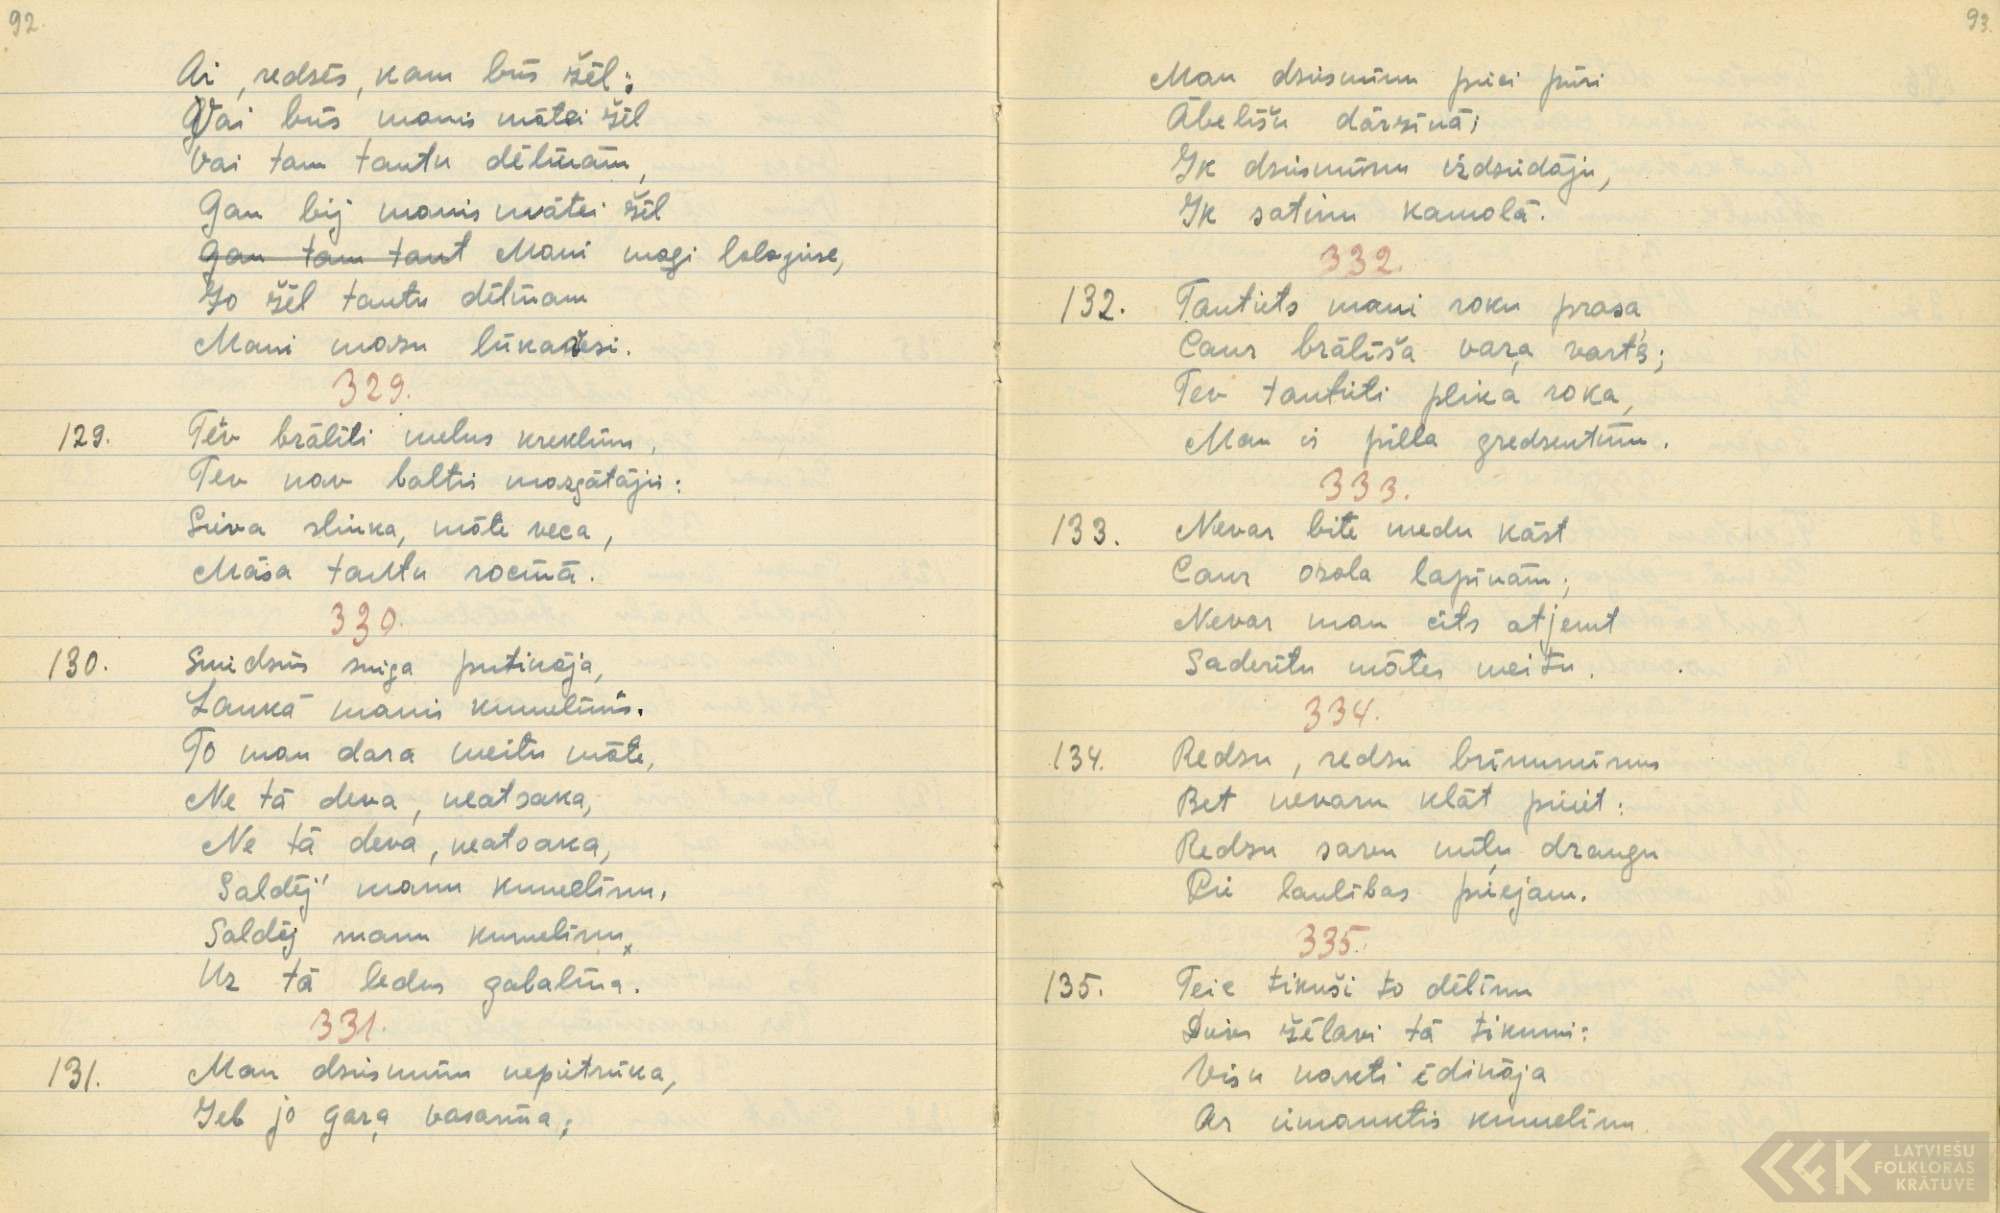 92.
Ai, redzēs, kam būs žēl:
Vai būs manis mātei žēl
Vai tam tautu dēliņam,
Gan bij manis mātei žēl
Gan tam taut Mani mazi lolojuse,
Jo žēl tautu dēliņam
Mani mazu lūkojesi.
329.
129. Tev brālīti melns krekliņš,
Tev nav baltis mazgātājis:
Sieva slinka, māte veca,
Māsa tautu rociņā.
330.
130. Sniedziņš sniga putināja,
Laukā manis kumeliņis.
To man dara meitu māte,
Ne tā deva, neatsaka,
Ne tā deva, neatsaka,
Saldēj' manu kumeliņu,
Saldēj manu kumeliņu
Uz tā ledus gabaliņa.
331.
131. Man dziesmiņu nepietrūka,
Jeb jo gaŗa vasariņa;
93.
Man dziesmiņu pieci pūri
Ābelīšu dārziņā;
Ik dziesmiņu izdziedāju,
Ik satinu kamolā.
332.
132. Tautiets mani roku prasa
Caur brālīša vaŗa vārtis;
Tev tautieti plika roka,
Man ir pilla gredzentiņu.
333.
133. Nevar bite medu kāst
Caur ozola lapiņām;
Nevar man cits atjemt
Saderētu mātes meitu.
334.
134. Redzu, redzu brīnumiņus
Bet nevaru klāt pieiet:
Redzu savu mīļu draugu
Pie laulības pieejam.
335.
135. Teic tikuši to dēliņu
Dievs žēlavi tā tikumi:
Visu nakti ēdināja
Ar iemauktis kumeliņu
LATVIEŠU
FOLKLORAS
KRĀTUVE